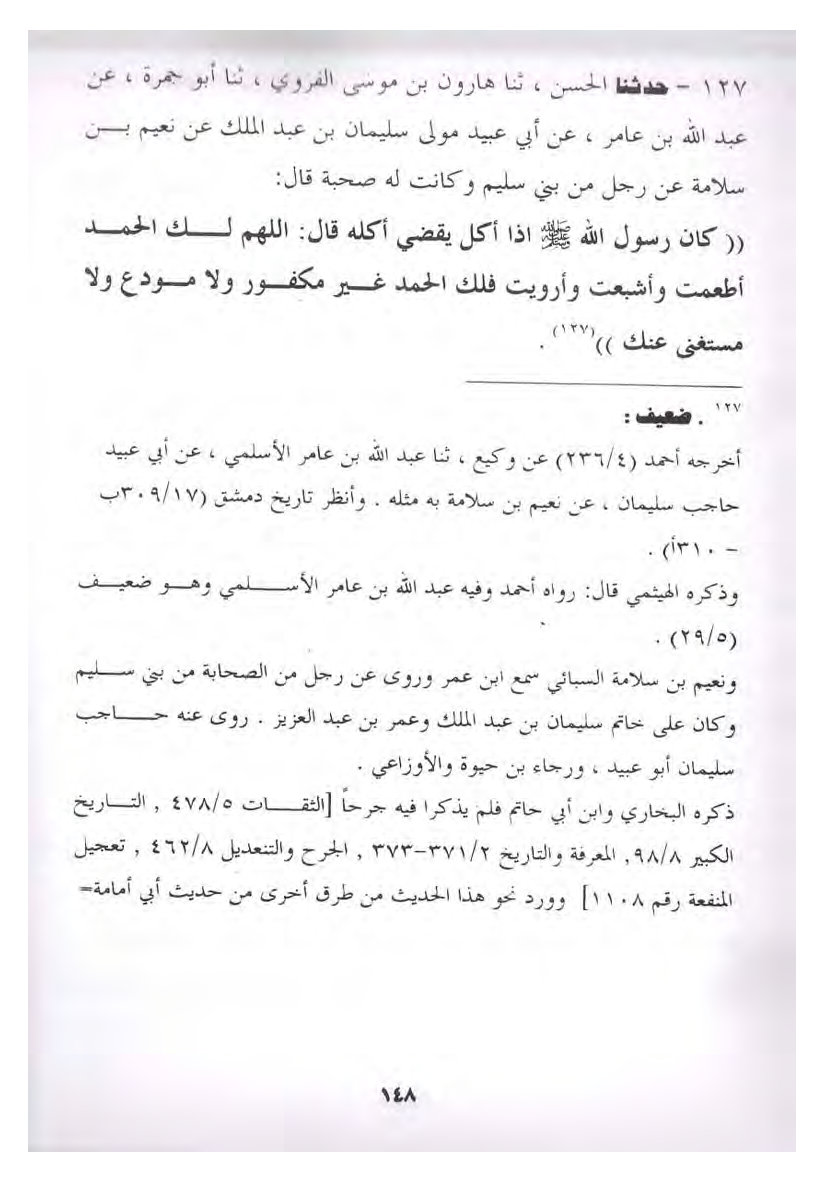 ١٢٧ – حدثنا الحسن ، ثنا هارون بن موسى الفروي ، ثنا أبو جمرة ، عن
عبد الله بن عامر ، عن أبي عبيد مولى سليمان بن عبد الملك عن نعيم بن
سلامة عن رجل من بني سليم وكانت له صحبة قال:
(( كان رسول الله ﷺ اذا أكل يقضي أكله قال: اللهم لك الحمد
أطعمت وأشبعت وأرويت فلك الحمد غير مكفور ولا مودع ولا
مستغنى عنك ))(١٢٧) .
١٢٧ . ضعيف :
أخرجه أحمد (٢٣٦/٤) عن وكيع ، ثنا عبد الله بن عامر الأسلمي ، عن أبي عبيد
حاجب سليمان ، عن نعيم بن سلامة به مثله . وأنظر تاريخ دمشق (٣٠٩/١٧ب
– ٣١٠أ) .
وذكره الهيثمي قال: رواه أحمد وفيه عبد الله بن عامر الأسلمي وهو ضعيف
(٢٩/٥) .
ونعيم بن سلامة السبائي سمع ابن عمر وروى عن رجل من الصحابة من بني سليم
وكان على خاتم سليمان بن عبد الملك وعمر بن عبد العزيز . روى عنه حاجب
سليمان أبو عبيد ، ورجاء بن حيوة والأوزاعي .
ذكره البخاري وابن أبي حاتم فلم يذكرا فيه جرحاً [الثقات ٤٧٨/٥ , التاريخ
الكبير ٩٨/٨, المعرفة والتاريخ ٣٧١/٢–٣٧٣ , الجرح والتنعديل ٤٦٢/٨ , تعجيل
المنفعة رقم ١١٠٨] وورد نحو هذا الحديث من طرق أخرى من حديث أبي أمامة=
١٤٨